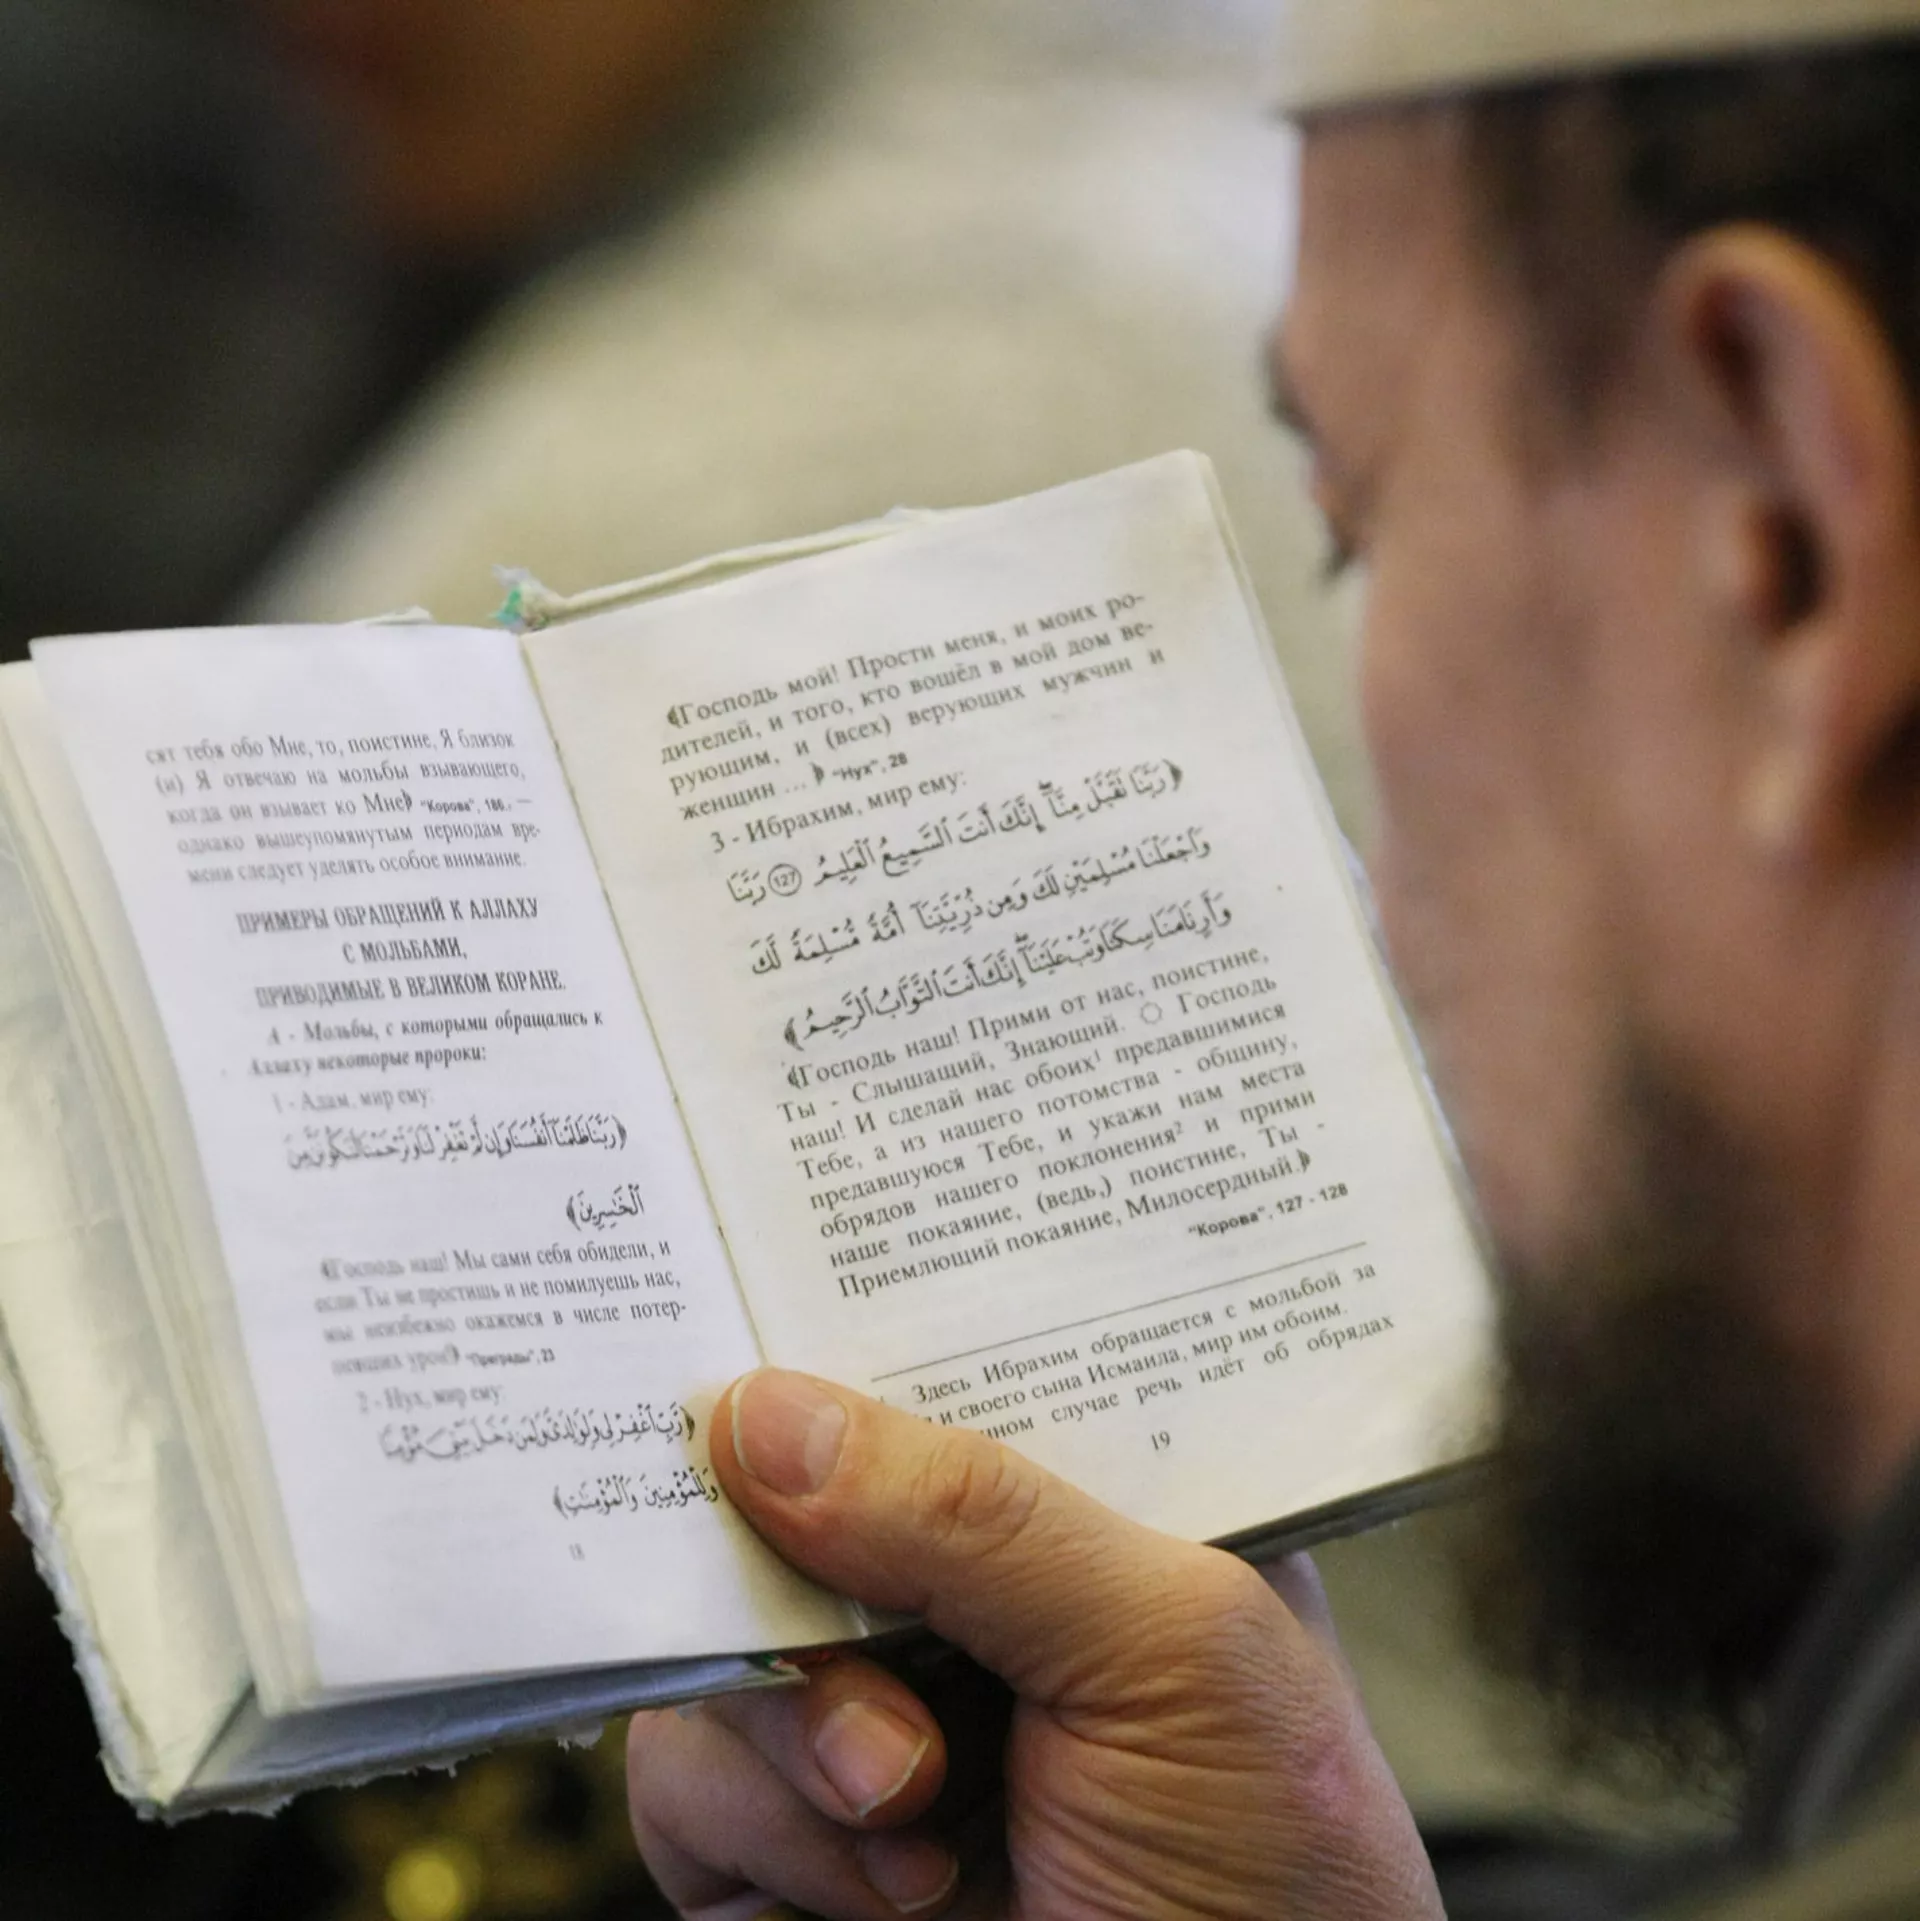 сят тебя обо Мне, то, поистине, Я близок
(и) Я отвечаю на мольбы взывающего,
когда он взывает ко Мне﴿ "Корова", 186., —
однако вышеупомянутым периодам вре-
мени следует уделять особое внимание.
ПРИМЕРЫ ОБРАЩЕНИЙ К АЛЛАХУ
С МОЛЬБАМИ,
ПРИВОДИМЫЕ В ВЕЛИКОМ КОРАНЕ.
А - Мольбы, с которыми обращались к
Аллаху некоторые пророки:
1 - Адам, мир ему:
﴿رَبَّنَا ظَلَمْنَا أَنفُسَنَا وَإِن لَّمْ تَغْفِرْ لَنَا وَتَرْحَمْنَا لَنَكُونَنَّ مِنَ
ٱلْخَٰسِرِينَ﴾
﴾Господь наш! Мы сами себя обидели, и
если Ты не простишь и не помилуешь нас,
мы неизбежно окажемся в числе потер-
певших урон﴿ "Преграды", 23
2 - Нух, мир ему:
﴿رَّبِّ ٱغْفِرْ لِى وَلِوَٰلِدَىَّ وَلِمَن دَخَلَ بَيْتِىَ مُؤْمِنًا
وَلِلْمُؤْمِنِينَ وَٱلْمُؤْمِنَٰتِ﴾
18
﴾Господь мой! Прости меня, и моих ро-
дителей, и того, кто вошёл в мой дом ве-
рующим, и (всех) верующих мужчин и
женщин ...﴿ "Нух", 28
3 - Ибрахим, мир ему:
﴿رَبَّنَا تَقَبَّلْ مِنَّآ ۖ إِنَّكَ أَنتَ ٱلسَّمِيعُ ٱلْعَلِيمُ (127) رَبَّنَا
وَٱجْعَلْنَا مُسْلِمَيْنِ لَكَ وَمِن ذُرِّيَّتِنَآ أُمَّةً مُّسْلِمَةً لَّكَ
وَأَرِنَا مَنَاسِكَنَا وَتُبْ عَلَيْنَآ ۖ إِنَّكَ أَنتَ ٱلتَّوَّابُ ٱلرَّحِيمُ﴾
﴾Господь наш! Прими от нас, поистине,
Ты - Слышащий, Знающий. ۝ Господь
наш! И сделай нас обоих¹ предавшимися
Тебе, а из нашего потомства - общину,
предавшуюся Тебе, и укажи нам места
обрядов нашего поклонения² и прими
наше покаяние, (ведь,) поистине, Ты -
Приемлющий покаяние, Милосердный.﴿
"Корова", 127 - 128
Здесь Ибрахим обращается с мольбой за
и своего сына Исмаила, мир им обоим.
случае речь идёт об обрядах
19